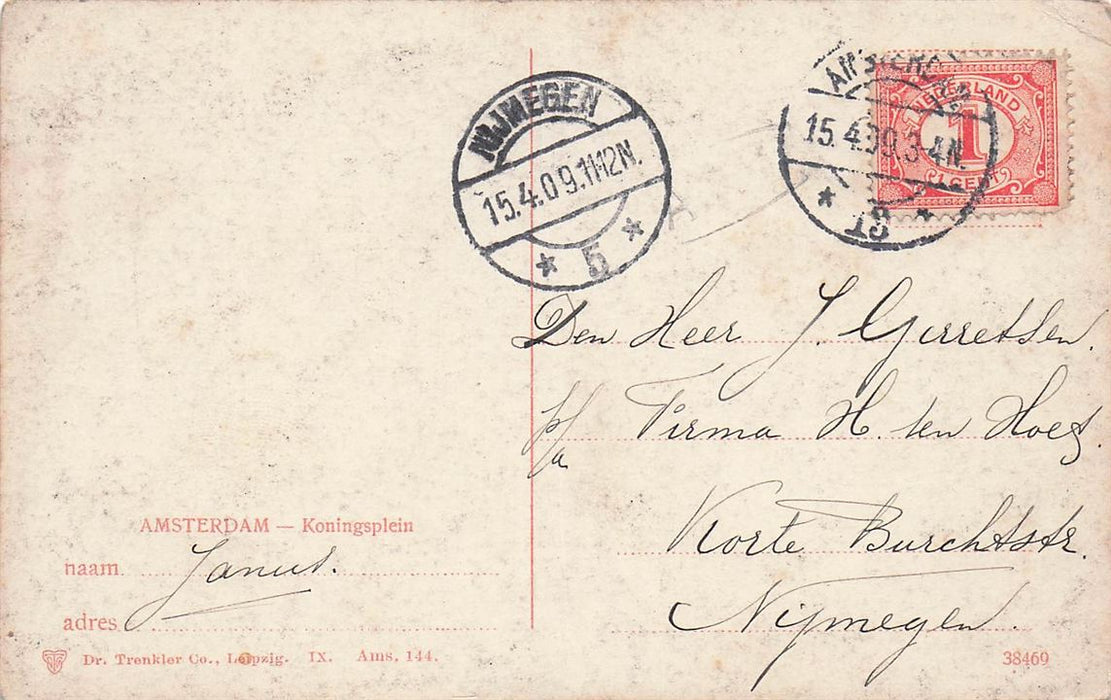 NIJMEGEN
15.4.09.11-12N.
5
AMSTERDAM
15.4.09.3-4N.
13
NEDERLAND
1
1 CENT
Den Heer J. Gerretsen.
p/a Firma H. ten Hoet.
Korte Burchtstr.
Nijmegen.
AMSTERDAM — Koningsplein
naam Janus.
adres
Dr. Trenkler Co., Leipzig. IX. Ams. 144.
38469